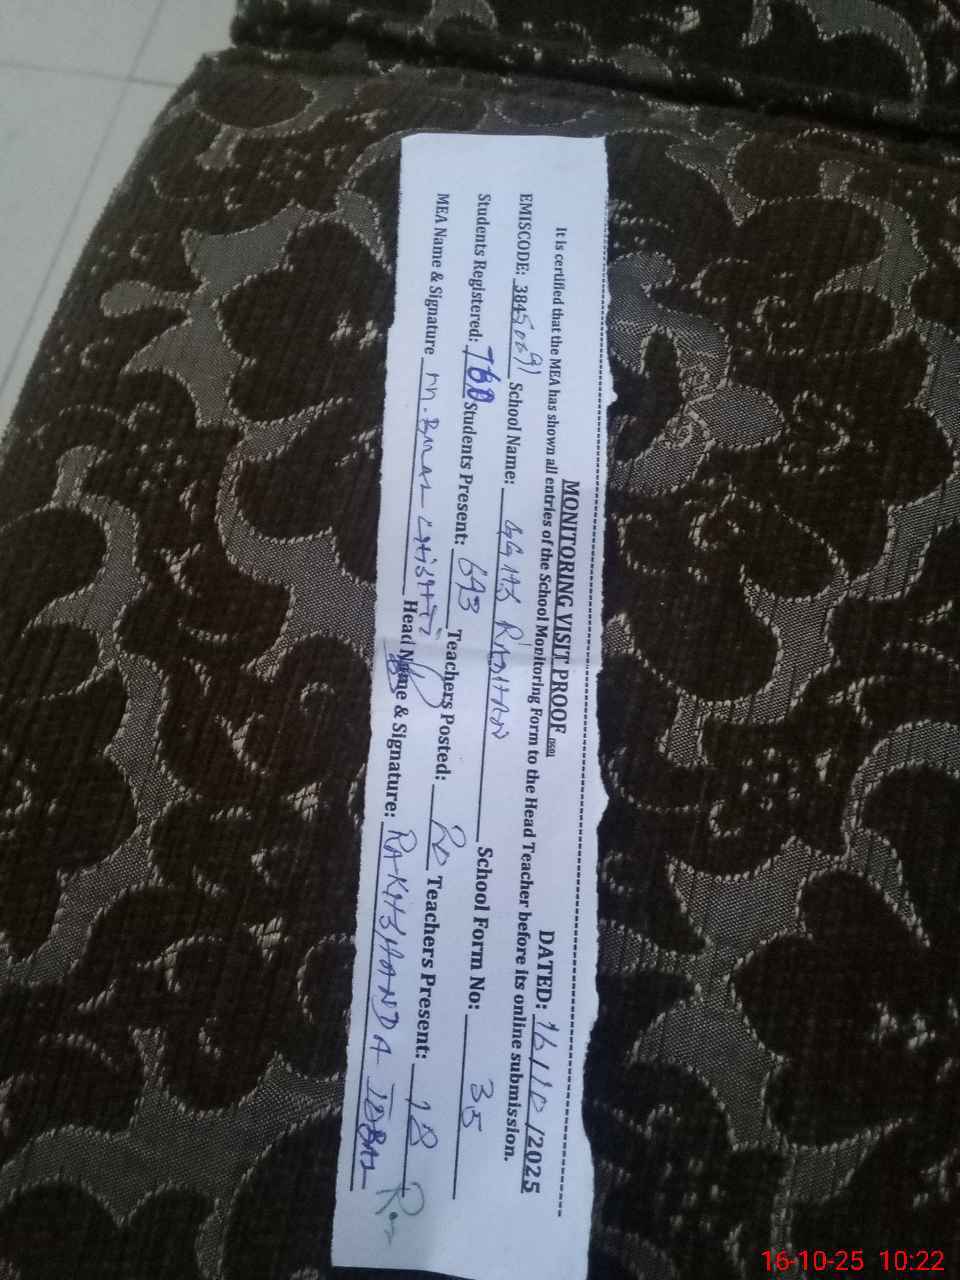 MONITORING VISIT PROOF DATED: 16/10/2025
It is certified that the MEA has shown all entries of the School Monitoring Form to the Head Teacher before its online submission.
EMISCODE: 38450091 School Name: GGHS School Form No: 35
Students Registered: Students Present: 693 Teachers Posted: 20 Teachers Present: 18
MEA Name & Signature Head Name & Signature: RAKHSHANDA IQBAL
16-10-25 10:22